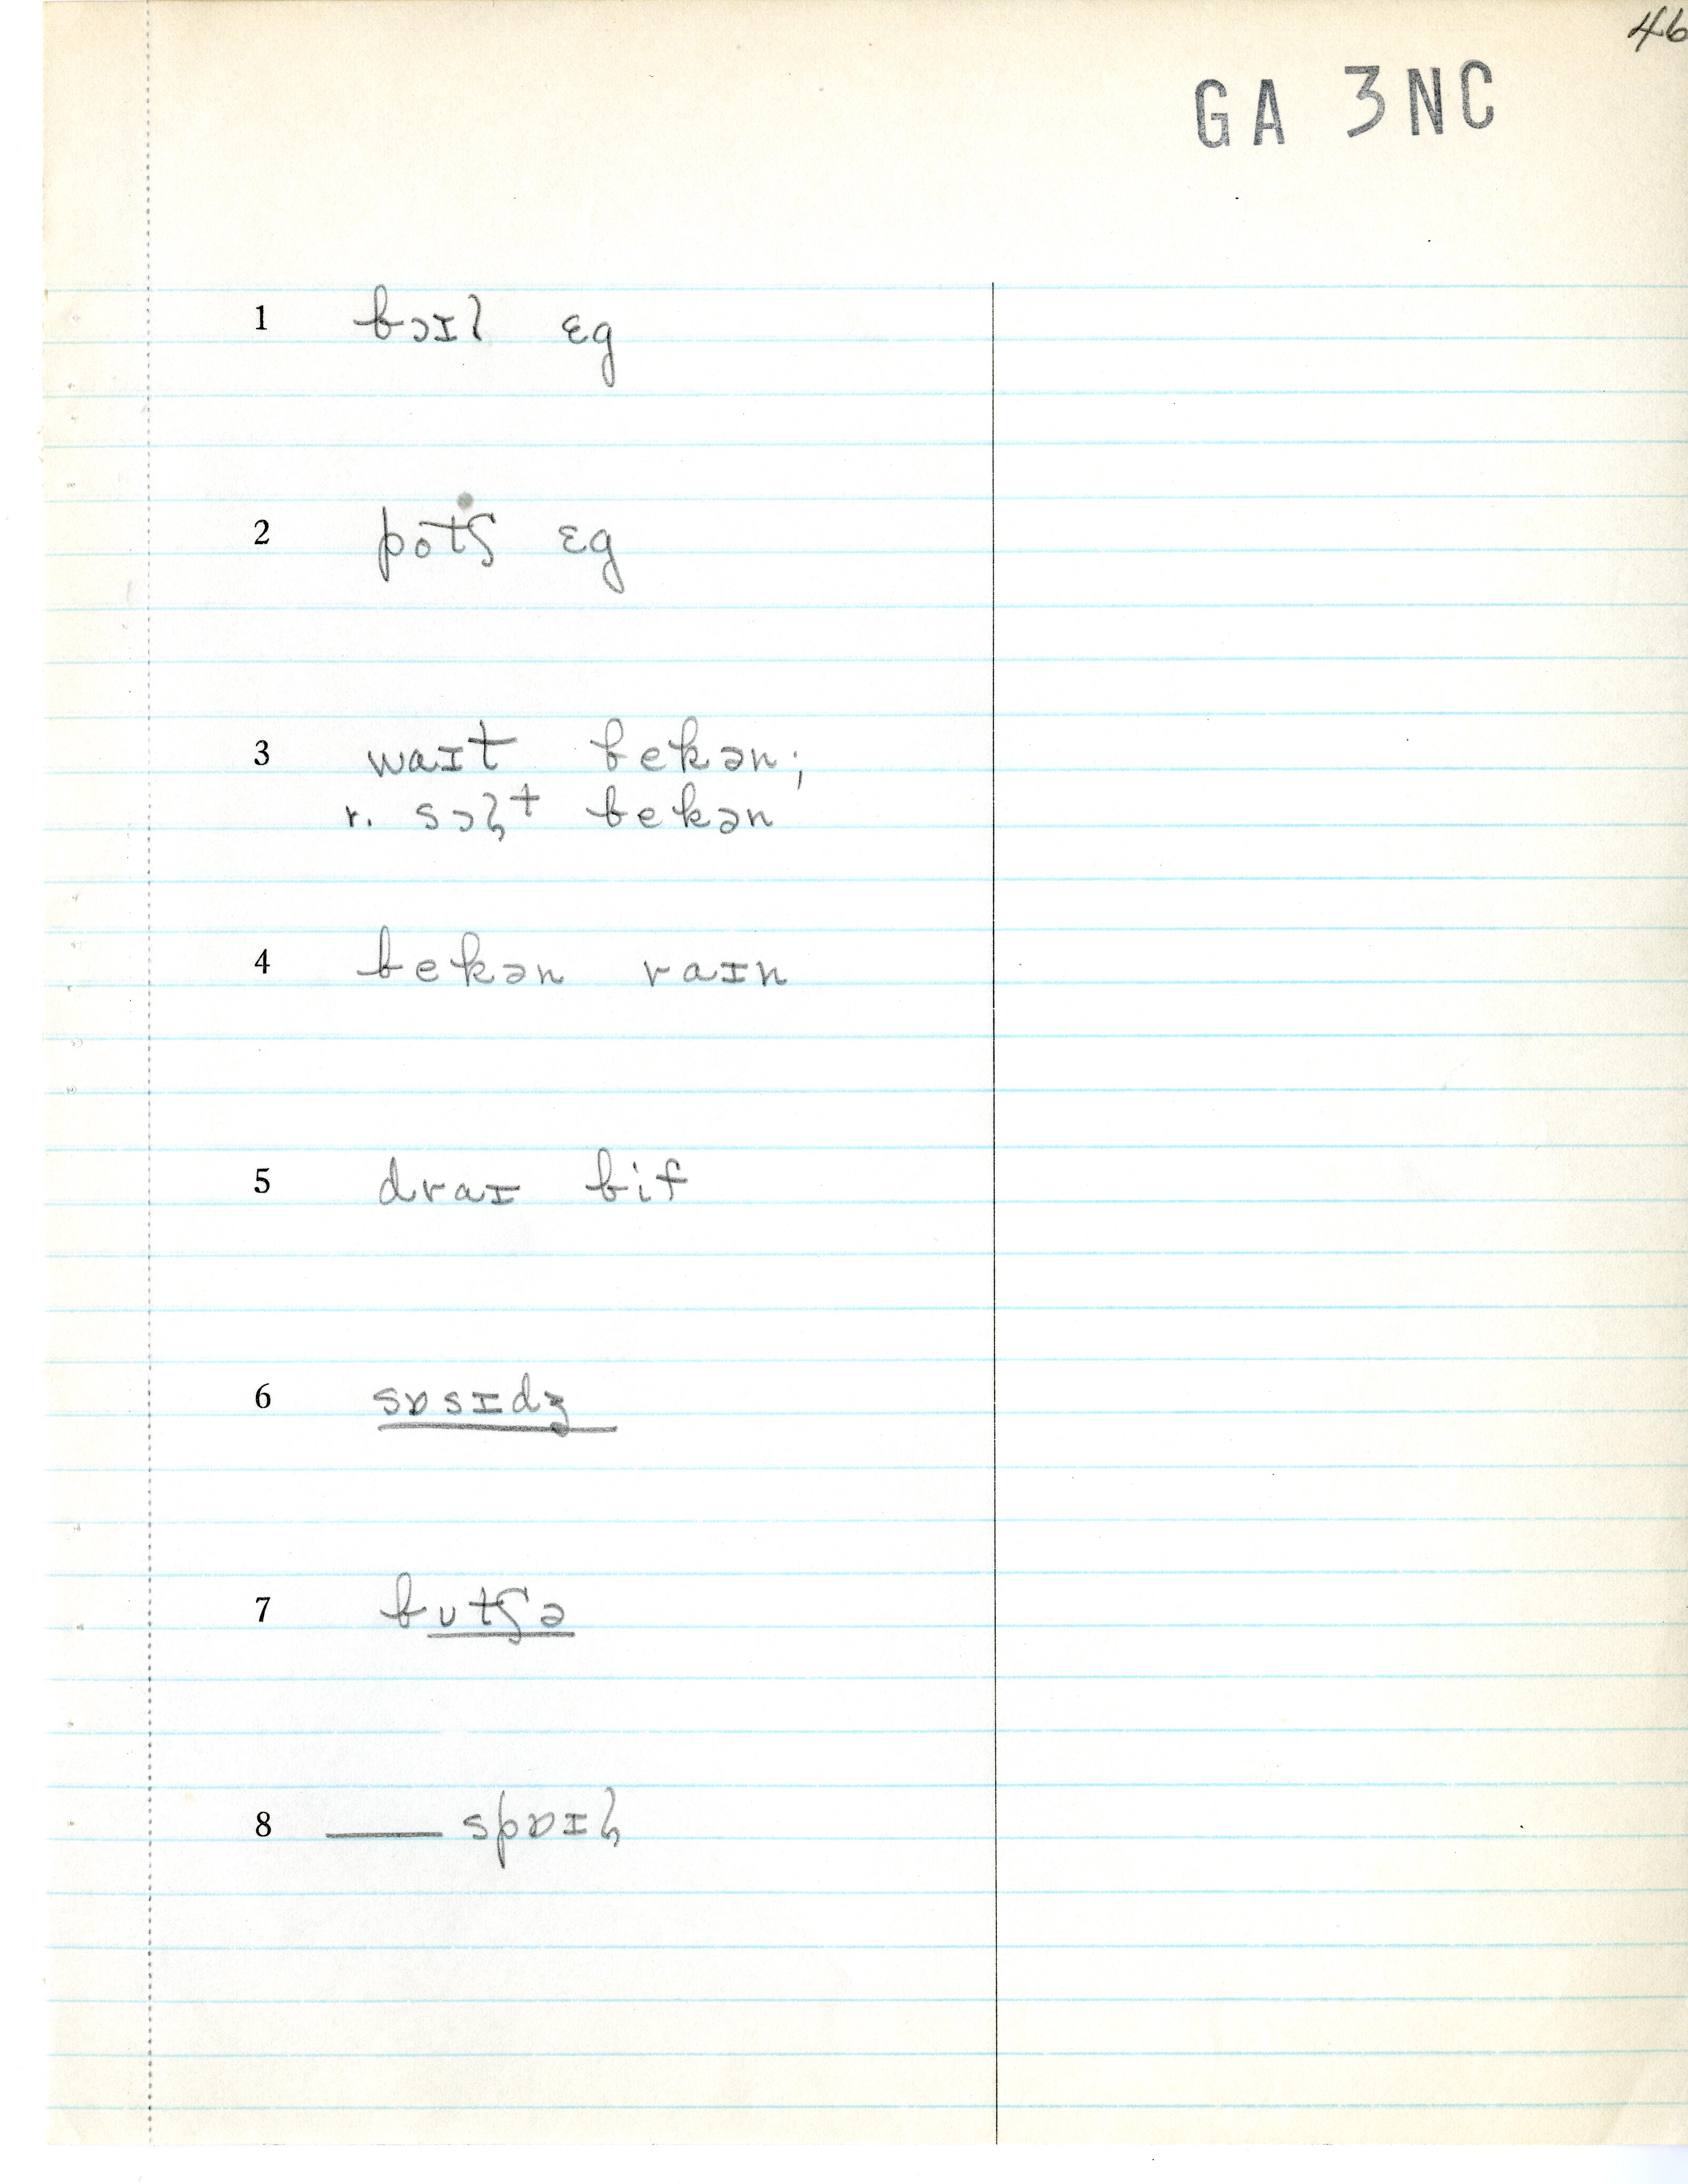 46
GA 3NC
1 bɔɪl ɛg
2 potʃ ɛg
3 waɪt bekən;
r. sɔɫt bekən
4 bekən raɪn
5 draɪ bif
6 sɒsɪdʒ
7 bʊtʃə
8 ___ spɒɪɫ